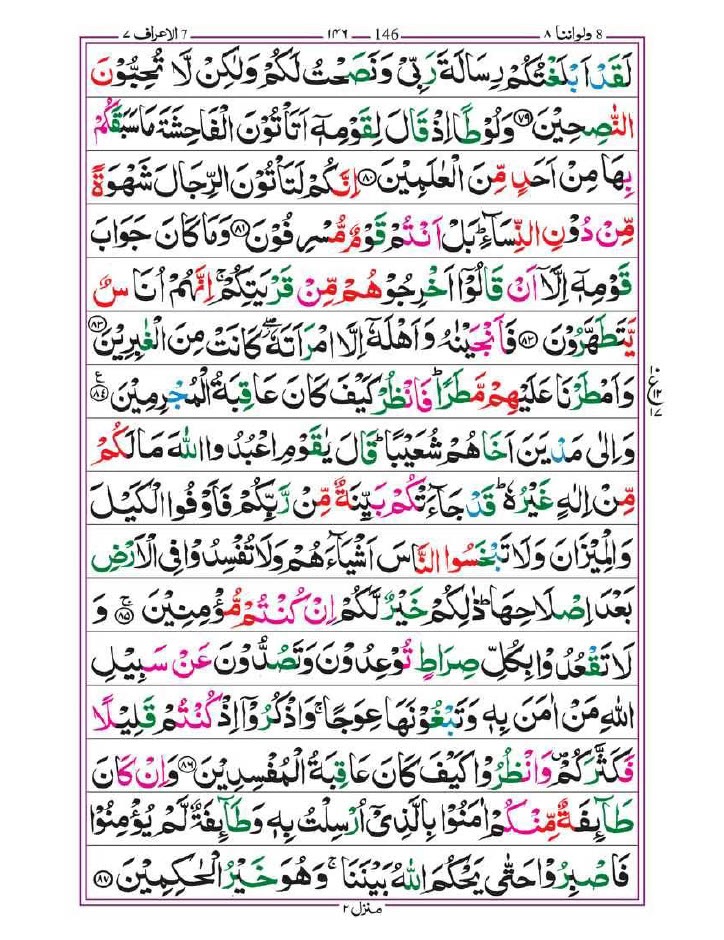 8 ولواننا ٨ — 146 — ١٤٦ — 7 الاعراف ٧
لَقَدْ اَبْلَغْتُكُمْ رِسَالَةَ رَبِّیْ وَنَصَحْتُ لَكُمْ وَلٰكِنْ لَّا تُحِبُّوْنَ
النّٰصِحِیْنَ ﴿٧٩﴾ وَلُوْطًا اِذْ قَالَ لِقَوْمِهٖۤ اَتَاْتُوْنَ الْفَاحِشَةَ مَا سَبَقَكُمْ
بِهَا مِنْ اَحَدٍ مِّنَ الْعٰلَمِیْنَ ﴿٨٠﴾ اِنَّكُمْ لَتَاْتُوْنَ الرِّجَالَ شَهْوَةً
مِّنْ دُوْنِ النِّسَآءِ ؕ بَلْ اَنْتُمْ قَوْمٌ مُّسْرِفُوْنَ ﴿٨١﴾ وَمَا كَانَ جَوَابَ
قَوْمِهٖۤ اِلَّاۤ اَنْ قَالُوْۤا اَخْرِجُوْهُمْ مِّنْ قَرْیَتِكُمْ ۚ اِنَّهُمْ اُنَاسٌ
یَّتَطَهَّرُوْنَ ﴿٨٢﴾ فَاَنْجَیْنٰهُ وَاَهْلَهٗۤ اِلَّا امْرَاَتَهٗ ۖ كَانَتْ مِنَ الْغٰبِرِیْنَ ﴿٨٣﴾
وَاَمْطَرْنَا عَلَیْهِمْ مَّطَرًا ؕ فَانْظُرْ كَیْفَ كَانَ عَاقِبَةُ الْمُجْرِمِیْنَ ﴿٨٤﴾ ع ١٠ ع ١٢ ١٧
وَاِلٰی مَدْیَنَ اَخَاهُمْ شُعَیْبًا ؕ قَالَ یٰقَوْمِ اعْبُدُوا اللّٰهَ مَا لَكُمْ
مِّنْ اِلٰهٍ غَیْرُهٗ ؕ قَدْ جَآءَتْكُمْ بَیِّنَةٌ مِّنْ رَّبِّكُمْ فَاَوْفُوا الْكَیْلَ
وَالْمِیْزَانَ وَلَا تَبْخَسُوا النَّاسَ اَشْیَآءَهُمْ وَلَا تُفْسِدُوْا فِی الْاَرْضِ
بَعْدَ اِصْلَاحِهَا ؕ ذٰلِكُمْ خَیْرٌ لَّكُمْ اِنْ كُنْتُمْ مُّؤْمِنِیْنَ ۚ ﴿٨٥﴾ وَ
لَا تَقْعُدُوْا بِكُلِّ صِرَاطٍ تُوْعِدُوْنَ وَتَصُدُّوْنَ عَنْ سَبِیْلِ
اللّٰهِ مَنْ اٰمَنَ بِهٖ وَتَبْغُوْنَهَا عِوَجًا ۚ وَاذْكُرُوْۤا اِذْ كُنْتُمْ قَلِیْلًا
فَكَثَّرَكُمْ ۪ وَانْظُرُوْا كَیْفَ كَانَ عَاقِبَةُ الْمُفْسِدِیْنَ ﴿٨٦﴾ وَاِنْ كَانَ
طَآئِفَةٌ مِّنْكُمْ اٰمَنُوْا بِالَّذِیْۤ اُرْسِلْتُ بِهٖ وَطَآئِفَةٌ لَّمْ یُؤْمِنُوْا
فَاصْبِرُوْا حَتّٰی یَحْكُمَ اللّٰهُ بَیْنَنَا ۚ وَهُوَ خَیْرُ الْحٰكِمِیْنَ ﴿٨٧﴾
منزل ٢